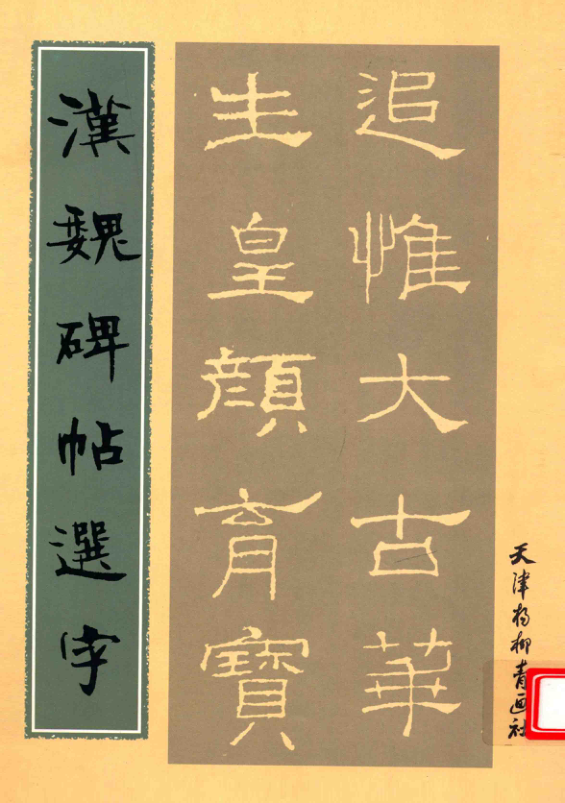 漢魏碑帖選字
追惟大古華
生皇顔育寶
天津杨柳青画社